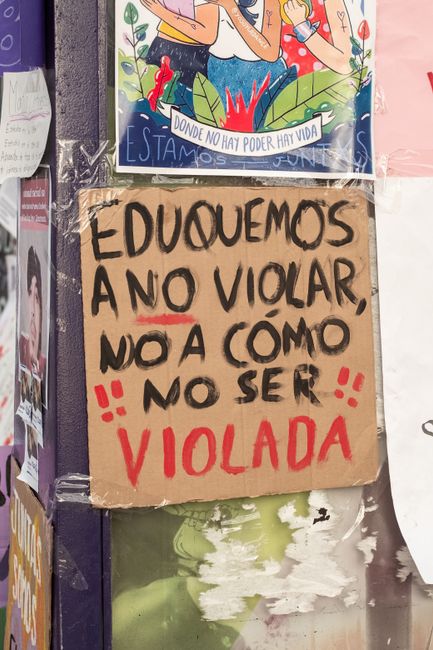 DONDE NO HAY PODER HAY VIDA
ESTAMOS JUNTAS
EDUQUEMOS
A NO VIOLAR,
NO A CÓMO
NO SER
!! VIOLADA !!